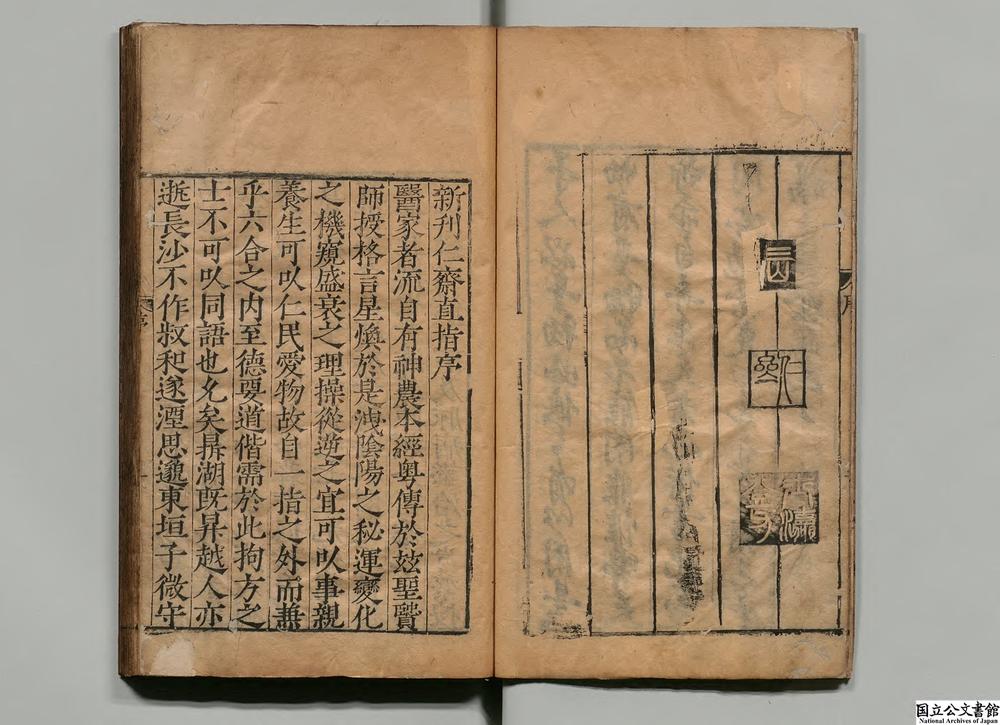 新刋仁齋直指序
醫家者流自有神農本經粤傳於玆聖賢
師授格言星煥於是洩陰陽之秘運變化
之機窺盛衰之理操從逆之宜可以事親
養生可以仁民愛物故自一指之外而兼
乎六合之内至德要道偕需於此拘方之
士不可以同語也允矣鼎湖旣昇越人亦
逝長沙不作叔和遂湮思邈東垣子微守
國立公文書館
National Archives of Japan